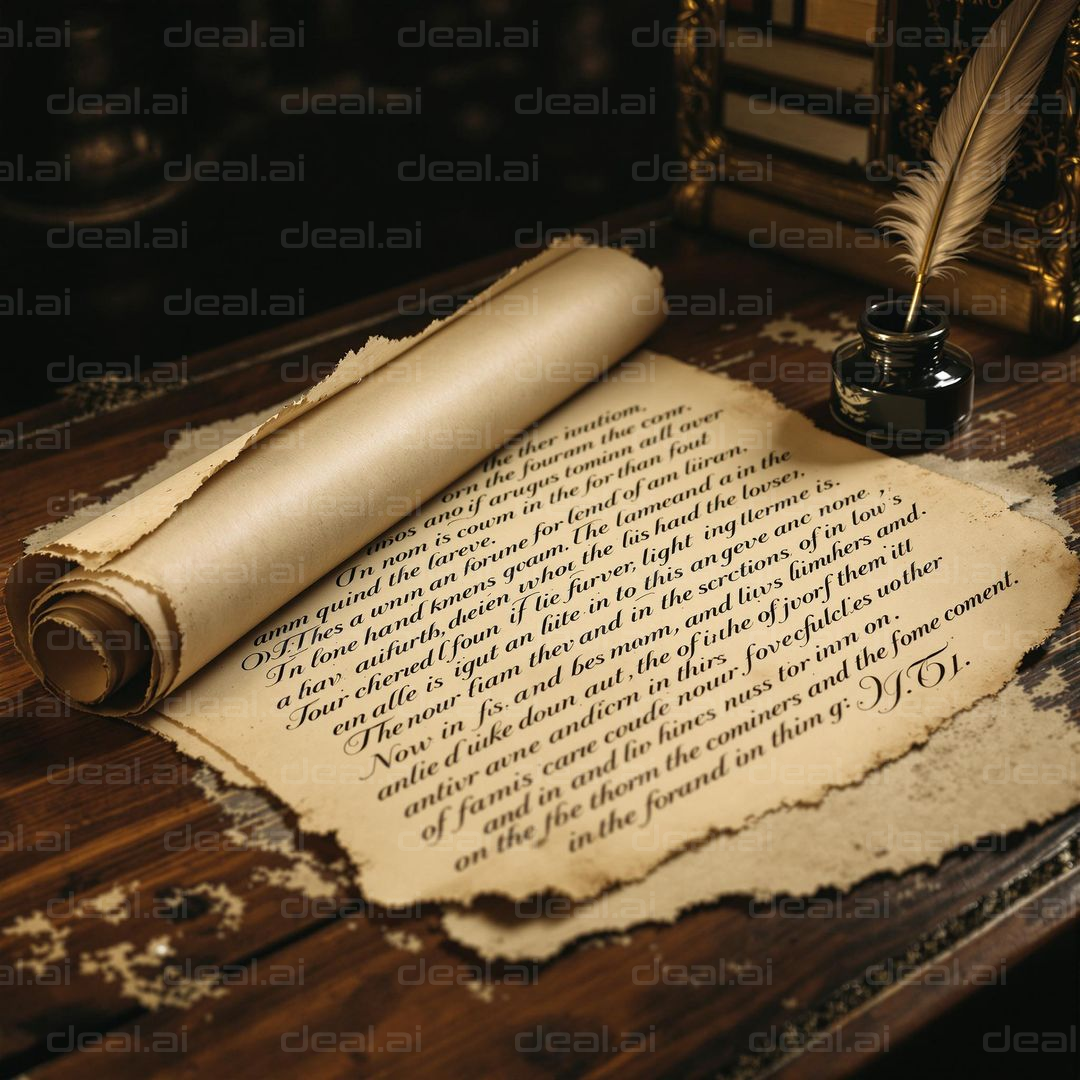 the ther iuatiom.
orn the fouram the conr.
imos ano if arugus tominn aull over
Tn nom is cowm in the for than fout
amm quind the lareve.
OJ.Thes a wnin an forune for lemd of am liiran.
Tn lone hand kmens gvaum. The lanmeand a in the
a hav. auifurth, deien whot the lis haud the lovser,
Tour cherred lfoun if lie furver, light inglterme is.
em alle is igut an liite in to this an geve anc none,
The nour liam thev and in the scrctions. of in low's
Now in fis. and bes morm, amd livs himhers amd.
anlie d uike doun aut, the of isthe of jvorf them itt
antivr avne andicrn in thirs fovecfulcles uother
of famis carre coude nouur
and in and liv hincs nuss tor innn on.
on the fbe thorm the cominers and the fome coment.
in the forand inn thim g: YJ.TJ.
deal.ai